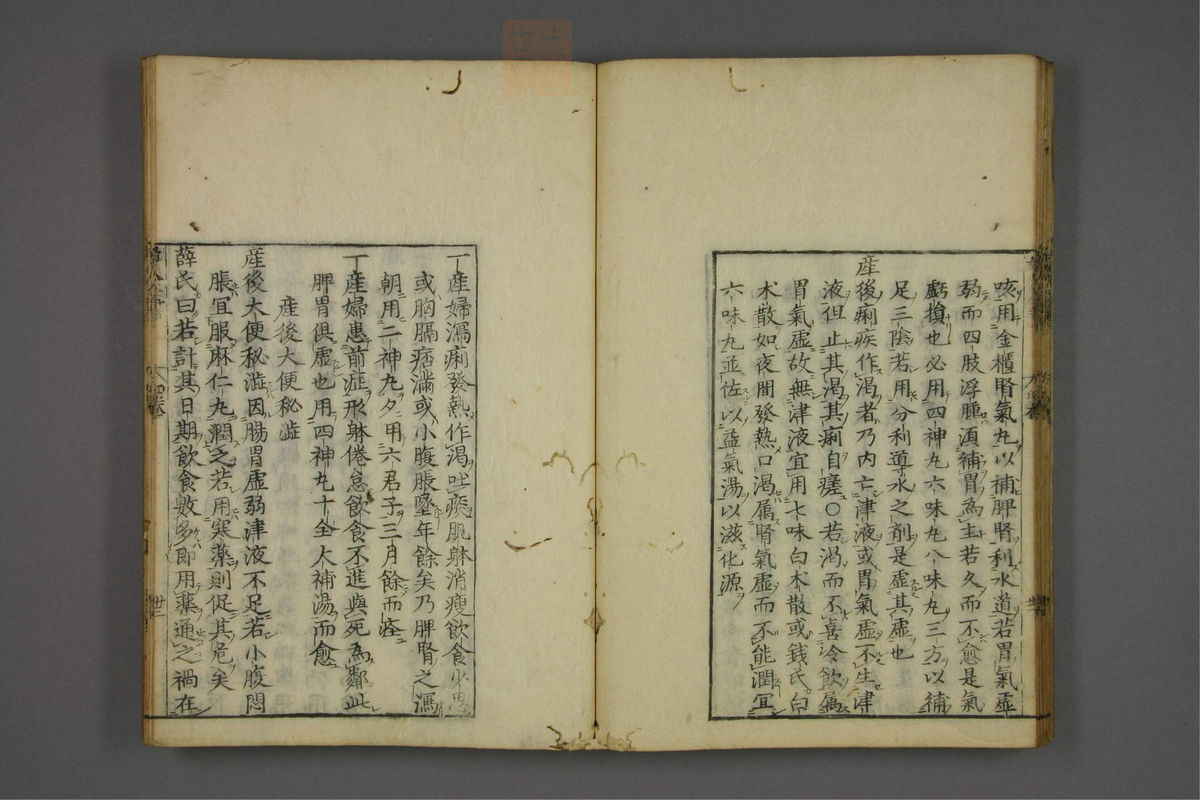 咳用金櫃腎氣丸以補脾腎利水道若胃氣虛
弱而四肢浮腫湏補胃為主若久而不愈是氣
虧損也必用四神丸六味丸八味丸三方以補
足三陰若用分利道水之劑是虛其虛也
産後痢疾作渴者乃內亡津液或胃氣虛不生津
液但止其渴其痢自瘥○若渴而不喜冷飲属
胃氣虛故無津液宜用七味白朮散或錢氏白
朮散如夜間發熱口渴属腎氣虛而不能潤宜
六味丸並佐以益氣湯以滋化源
一産婦瀉痢發熱作渴吐痰肌躰消瘦飲食少思
或胸膈痞滿或小腹脹墜年餘矣乃脾腎之瀉
朝用二神丸夕用六君子三月餘而痊
一産婦患前症形躰倦怠飲食不進與死為鄰此
脾胃俱虛也用四神丸十全大補湯而愈
産後大便秘澁
産後大便秘澁因腸胃虛弱津液不足若小腹悶
脹宜服麻仁丸潤之若用寒藥則促其危矣
薛氏曰若計其日期飲食數多即用藥通之禍在